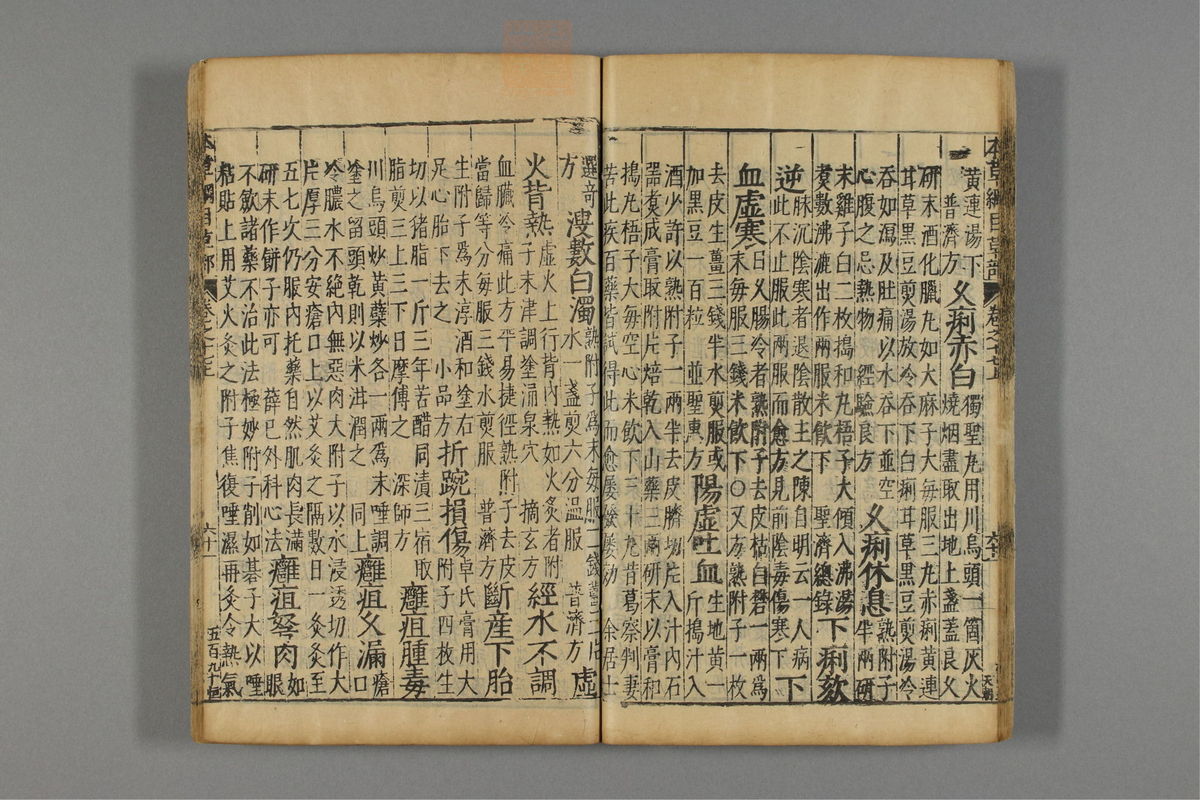 本草綱目草部
黃連湯下
普濟方
久痢赤白
獨聖丸用川烏頭一箇灰火
燒烟盡取出地上盞蓋良久
研末酒化臘丸如大麻子大每服三丸赤痢黃連
耳草黑豆煎湯放冷吞下白痢耳草黑豆煎湯冷
吞如瀉及肚痛以水吞下並空
心腹之忌熱物 經驗良方
久痢休息
熟附子
半兩研
末雞子白二枚搗和丸梧子大傾入沸湯
煑數沸漉出作兩服米飲下 聖濟總錄
下痢欬
逆
脉沉陰寒者退陰散主之陳自明云一人病
此不止服此兩服而愈方見前陰毒傷寒下
下
血虛寒
日久腸冷者熟附子去皮枯白礬一兩爲
末每服三錢米飲下○又方熟附子一枚
去皮生薑三錢半水煎服或
加黑豆一百粒 並聖惠方
陽虛吐血
生地黃一
斤搗汁入
酒少許以熟附子一兩半去皮臍切片入汁內石
器煑成膏取附片焙乾入山藥三兩研末以膏和
搗丸梧子大每空心米飲下三十丸昔葛察判妻
苦此疾百藥皆試得此而愈屢發屢効 余居士
選奇
方
溲數白濁
熟附子爲末每服一錢薑三片
水一盞煎六分溫服 普濟方
虛
火背熱
虛火上行背內熱如火灸者附
子末津調塗涌泉穴 摘玄方
經水不調
血臟冷痛此方平易捷徑熟附子去皮
當歸等分每服三錢水煎服 普濟方
斷産下胎
生附子爲末淳酒和塗右
足心胎下去之 小品方
折踠損傷
卓氏膏用大
附子四枚生
切以猪脂一斤三年苦醋同漬三宿取
脂煎三上三下日摩傅之 深師方
癰疽腫毒
川烏頭炒黃蘗炒各一兩爲末唾調
塗之留頭乾則以米泔潤之 同上
癰疽久漏
瘡口
冷膿水不絕內無惡肉大附子以水浸透切作大
片厚三分安瘡口上以艾灸之隔數日一灸灸至
五七次仍服內托藥自然肌肉長滿
研末作餅子亦可 薛已外科心法
癰疽弩肉
如眼
不斂諸藥不治此法極妙附子削如棊子大以唾
粘貼上用艾火灸之附子焦復唾濕再灸令熱氣
本草綱目草部
六十一